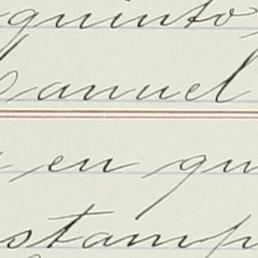 quinto,
Manuel
en qu
stamp